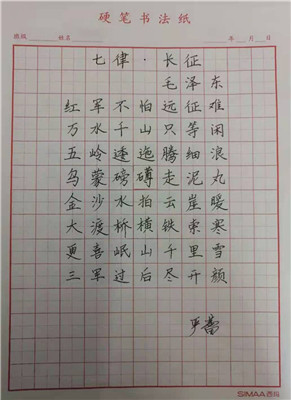 硬笔书法纸
班级 姓名 年 月 日
七律·长征
毛泽东
红军不怕远征难
万水千山只等闲
五岭逶迤腾细浪
乌蒙磅礴走泥丸
金沙水拍云崖暖
大渡桥横铁索寒
更喜岷山千里雪
三军过后尽开颜
严
SIMAA西玛